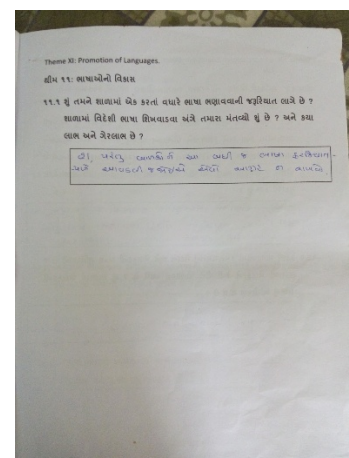 Theme XI: Promotion of Languages.
થીમ ૧૧: ભાષાઓનો વિકાસ
૧૧.૧ શું તમને શાળામાં એક કરતાં વધારે ભાષા ભણાવવાની જરૂરિયાત લાગે છે ?
શાળામાં વિદેશી ભાષા શિખવાડવા અંગે તમારા મંતવ્યો શું છે ? અને કયા
લાભ અને ગેરલાભ છે ?
હા, પરંતુ બાળકોને આ બધી જ ભાષા ફરજિયાત-
પણે આવડવી જ જોઈએ એવો આગ્રહ ન રાખવો